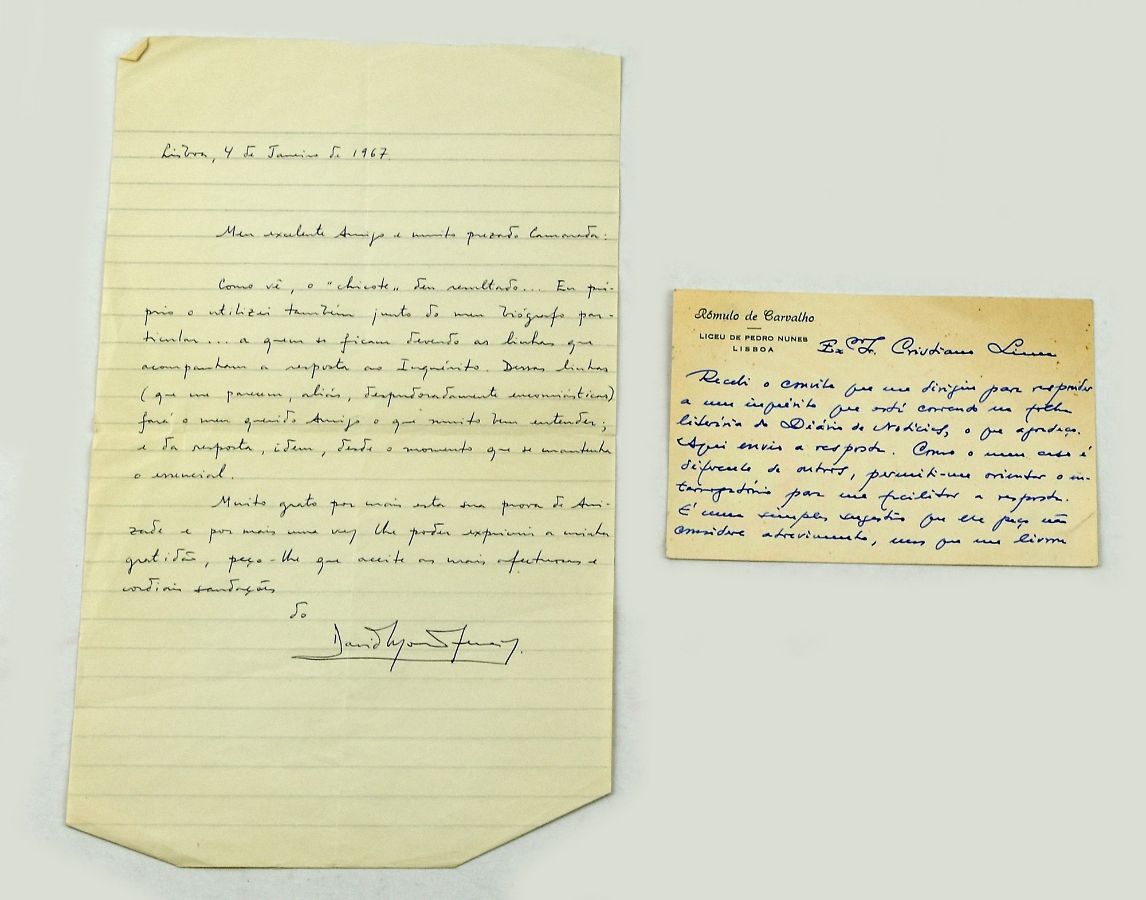 Lisboa, 4 de Janeiro de 1967
Meu excelente Amigo e muito prezado Camarada:
Como vê, o "chicote" deu resultado... Eu pró-
prio o utilizei também junto do meu biógrafo par-
ticular... a quem se ficam devendo as linhas que
acompanham a resposta ao Inquérito. Dessas linhas
(que me parecem, aliás, despudoradamente encomiásticas)
fará o meu querido Amigo o que muito bem entender;
e da resposta, idem, desde o momento que se mantenha
o essencial.
Muito grato por mais esta sua prova de Ami-
zade e por mais uma vez lhe poder exprimir a minha
gratidão, peço-lhe que aceite as mais afectuosas e
cordiais saudações
do
David Mourão-Ferreira.
Rómulo de Carvalho
LICEU DE PEDRO NUNES
LISBOA
Exmo Sr. Cristiano Lima
Recebi o convite que me dirigiu para responder
a um inquérito que está correndo na folha
literária do Diário de Notícias, o que agradeço.
Aqui envio a resposta. Como o meu caso é
diferente de outros, permiti-me orientar o in-
terrogatório para me facilitar a resposta.
É uma simples sugestão que lhe peço não
considere atrevimento, mas que me livrou